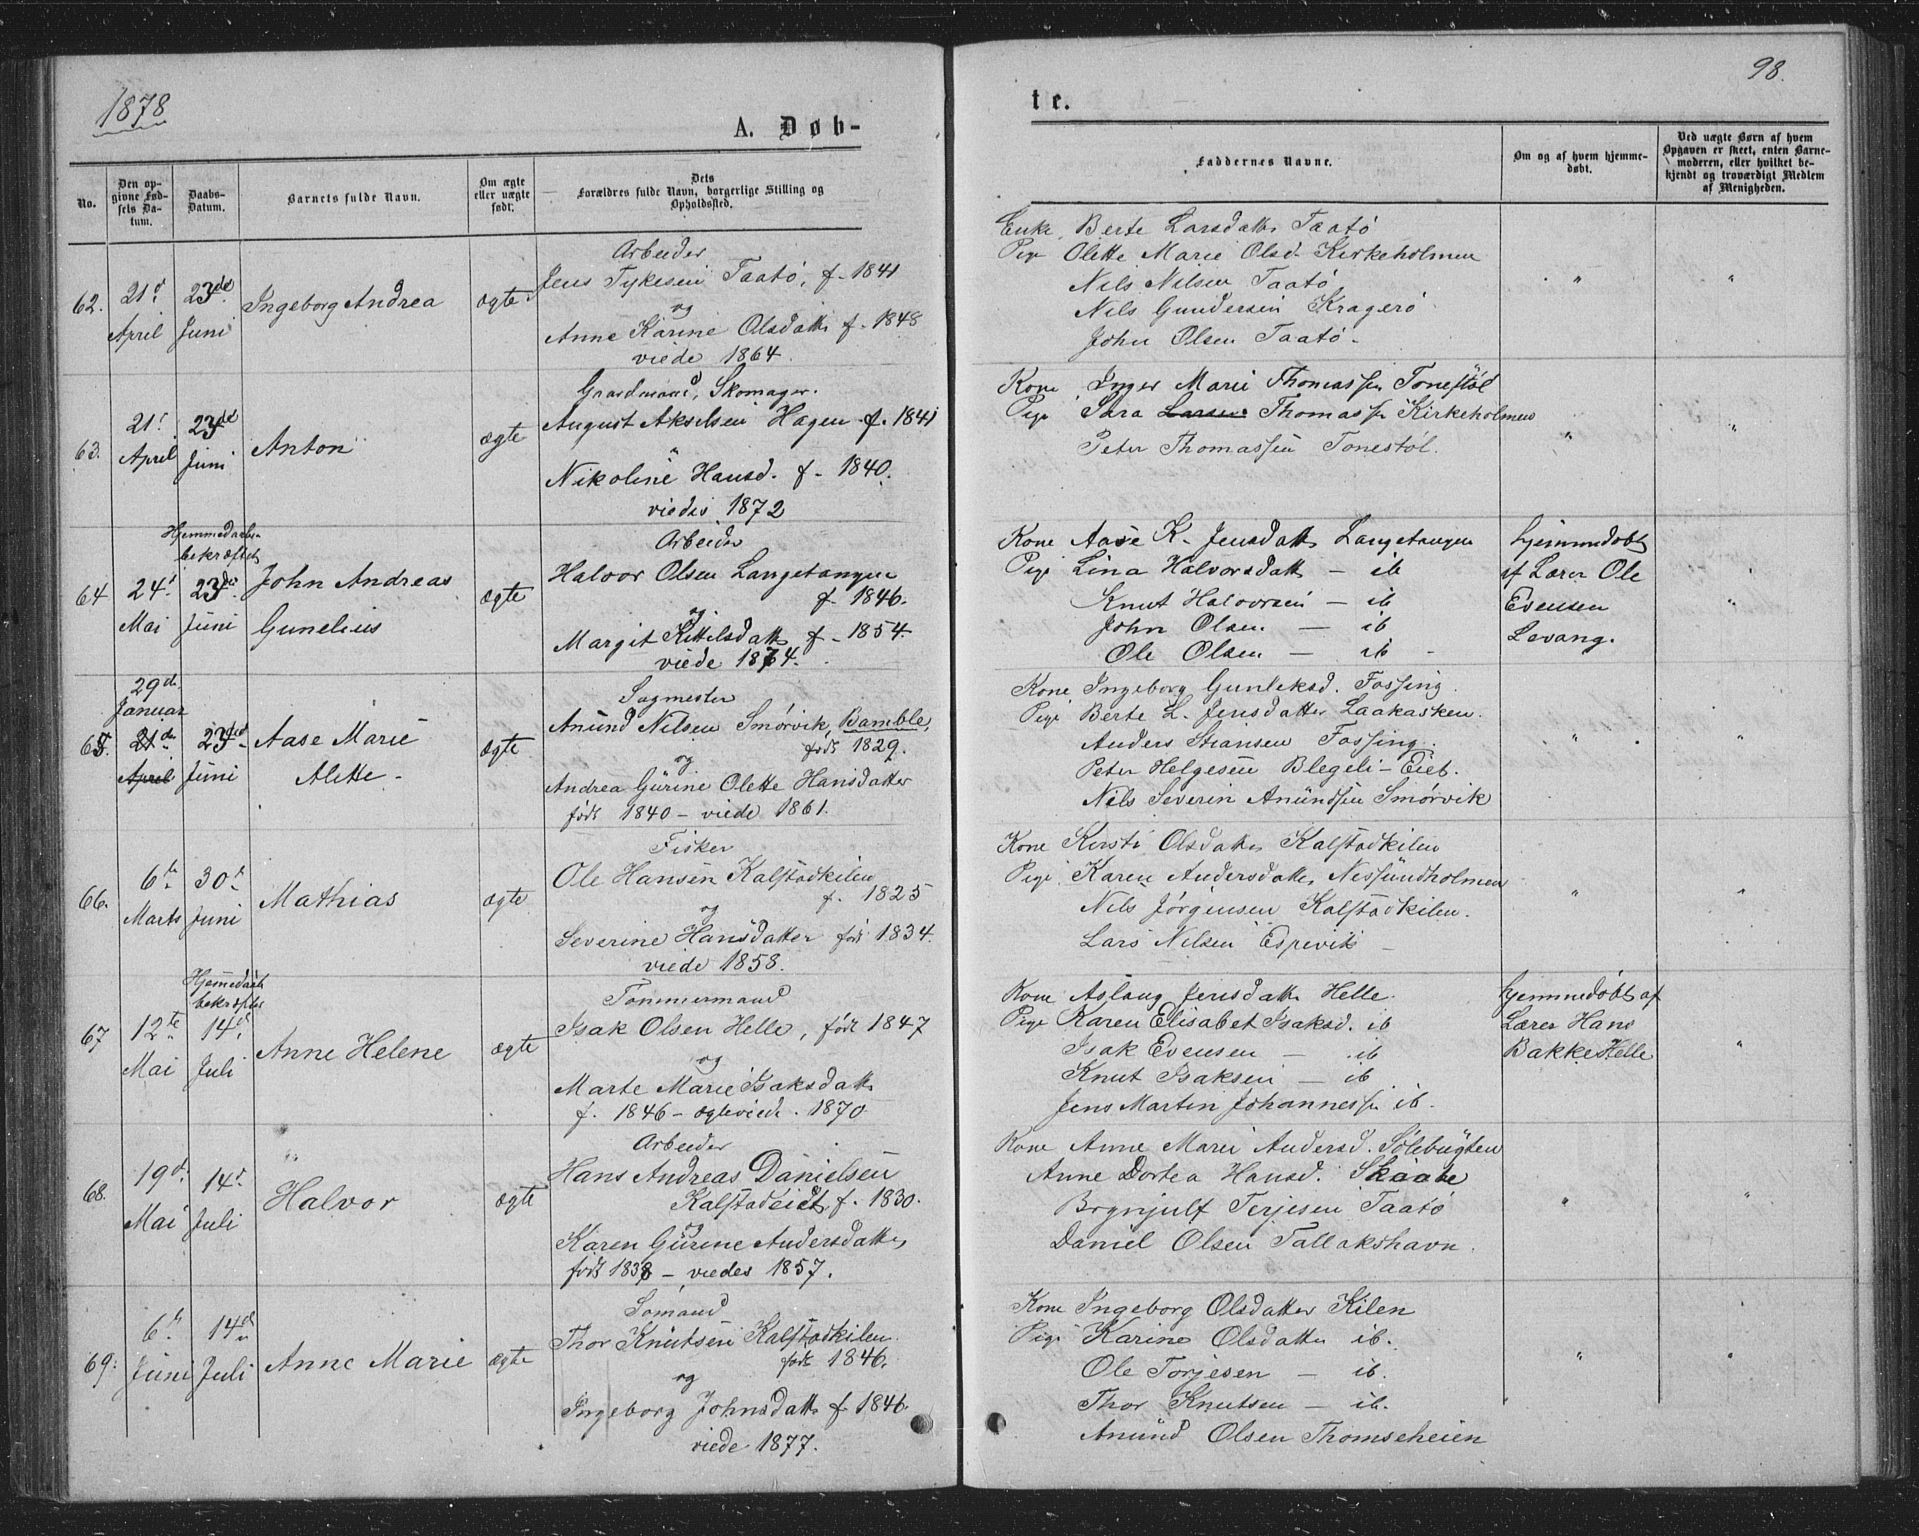 1878
A. Døb-
No.
Den op-
givne Fød-
sels Da-
tum.
Daabs-
Datum.
Barnets fulde Navn.
Om ægte
eller uægte
født.
Dets
Forældres fulde Navn, borgerlige Stilling og
Opholdssted.
62.
21d
April
23de
Juni
Ingeborg Andrea
ægte
Arbeider
Jens Tykesen Taatø, f. 1841
og
Anne Karine Olsdatt. f. 1848
viede 1864.
63.
21
April
23de
Juni
Anton
ægte
Gaardmand, Skomager.
August Akselsen Hagen f. 1841
Nikoline Hansd. f. 1840.
viedes 1872
64
24
Mai
Hjemmedaaben
bekræftet
23de
Juni
John Andreas
Gunelius
ægte
Arbeider
Halvor Olsen Langetangen
f. 1846.
og
Margit Kittilsdatt. f. 1854.
viede 1874.
65.
29de
Januar
21de
April
23de
Juni
Aase Marie
Alette
ægte
Sagmester
Anund Nilsen Smørvik, Bamble,
født 1829.
og
Andrea Gurine Olette Hansdatter
født 1840 - viede 1861.
66.
6te
Marts
30
Juni
Mathias
ægte
Fisker
Ole Hansen Kalstadkilen
f. 1825
og
Severine Hansdatter født 1834.
viede 1858.
67
12te
Mai
Hjemmedaab
bekræftet
14de
Juli
Anne Helene
ægte
Tømmermand
Isak Olsen Helle, født 1847
og
Marte Marie Isaksdatt.
f. 1846 - ægteviede. 1870
68.
19d
Mai
14d
Juli
Halvor
ægte
Arbeider
Hans Andreas Danielsen
Kalstadeidet, f. 1830.
og
Karen Gurine Andersdatt.
født 1838 - viedes 1857.
69.
6te
Juni
14de
Juli
Anne Marie
ægte
Sømand
Thor Knutsen Kalstadkilen
født 1846.
og
Ingeborg Johnsdatt. f 1846
viede 1877.
98.
te.
Faddernes Navne.
Om og af hvem hjemme-
døbt.
Ved uægte Børn af hvem
Opgaven er skeet, enten Barne-
moderen, eller hvilket be-
kjendt og troværdigt Medlem
af Menigheden.
Enke Berte Larsdatt. Taatø
Pige Olette Marie Olsd. Kirkeholmen
Nils Nilsen Taatø
Nils Gundersen Kragerø
John Olsen Taatø.
" "
Kone Inger Marie Thomassen Tonestøl
Pige Sara Larsen Thomass. Kirkeholmen
Peter Thomassen Tonestøl.
" "
Kone Aase K. Jensdatt. Langetangen
Pige Lina Halvorsdatt. — ib
Knut Halvorsen — ib
John Olsen — ib
Ole Olsen — ib
hjemmedøbt
af Lærer Ole
Evensen
Levang.
"
Kone Ingeborg Gunleksd. Fossing.
Pige Berte L. Jensdatter Laakasken.
Anders Stransen Fossing.
Peter Helgesen Blegeli-Eiet.
Nils Severin Anundsen Smørvik
" "
Kone Kirsti Olsdatt. Kalstadkilen
Pige Karen Andersdatt. Nessundholmen
Nils Jørgensen Kalstadkilen.
Lars Nilsen Espevik
" "
Kone Aslaug Jensdatt. Helle.
Pige Karen Elisabet Isaksd. ib
Isak Evensen — ib
Knut Isaksen — ib
Jens Martin Johanness. ib.
hjemmedøbt af
Lærer Hans
Bakke Helle
"
Kone Anne Marie Andersd. Solebugten
Anne Dortea Hansd. Skaabe
Brynjulf Terjesen Taatø
Daniel Olsen Tallakshavn.
" "
Kone Ingeborg Olsdatter Kilen
Pige Karine Olsdatt. ib.
Ole Torjesen — ib.
Thor Knutsen — ib.
Anund Olsen Thomseheien
" "